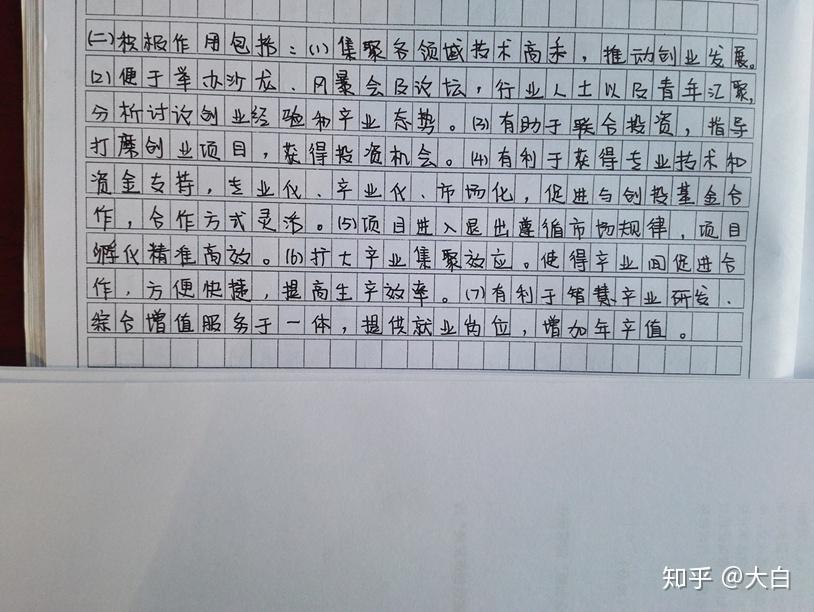 (二)积极作用包括：(1)集聚各领域技术高手，推动创业发展。
(2)便于举办沙龙、风暴会及论坛，行业人士以及青年汇聚，
分析讨论创业经验和产业态势。(3)有助于联合投资，指导
打磨创业项目，获得投资机会。(4)有利于获得专业技术和
资金支持，专业化、产业化、市场化，促进与创投基金合
作，合作方式灵活。(5)项目进入退出遵循市场规律，项目
孵化精准高效。(6)扩大产业集聚效应。使得产业间促进合
作，方便快捷，提高生产效率。(7)有利于智慧产业研发、
综合增值服务于一体，提供就业岗位，增加年产值。
知乎 @大白